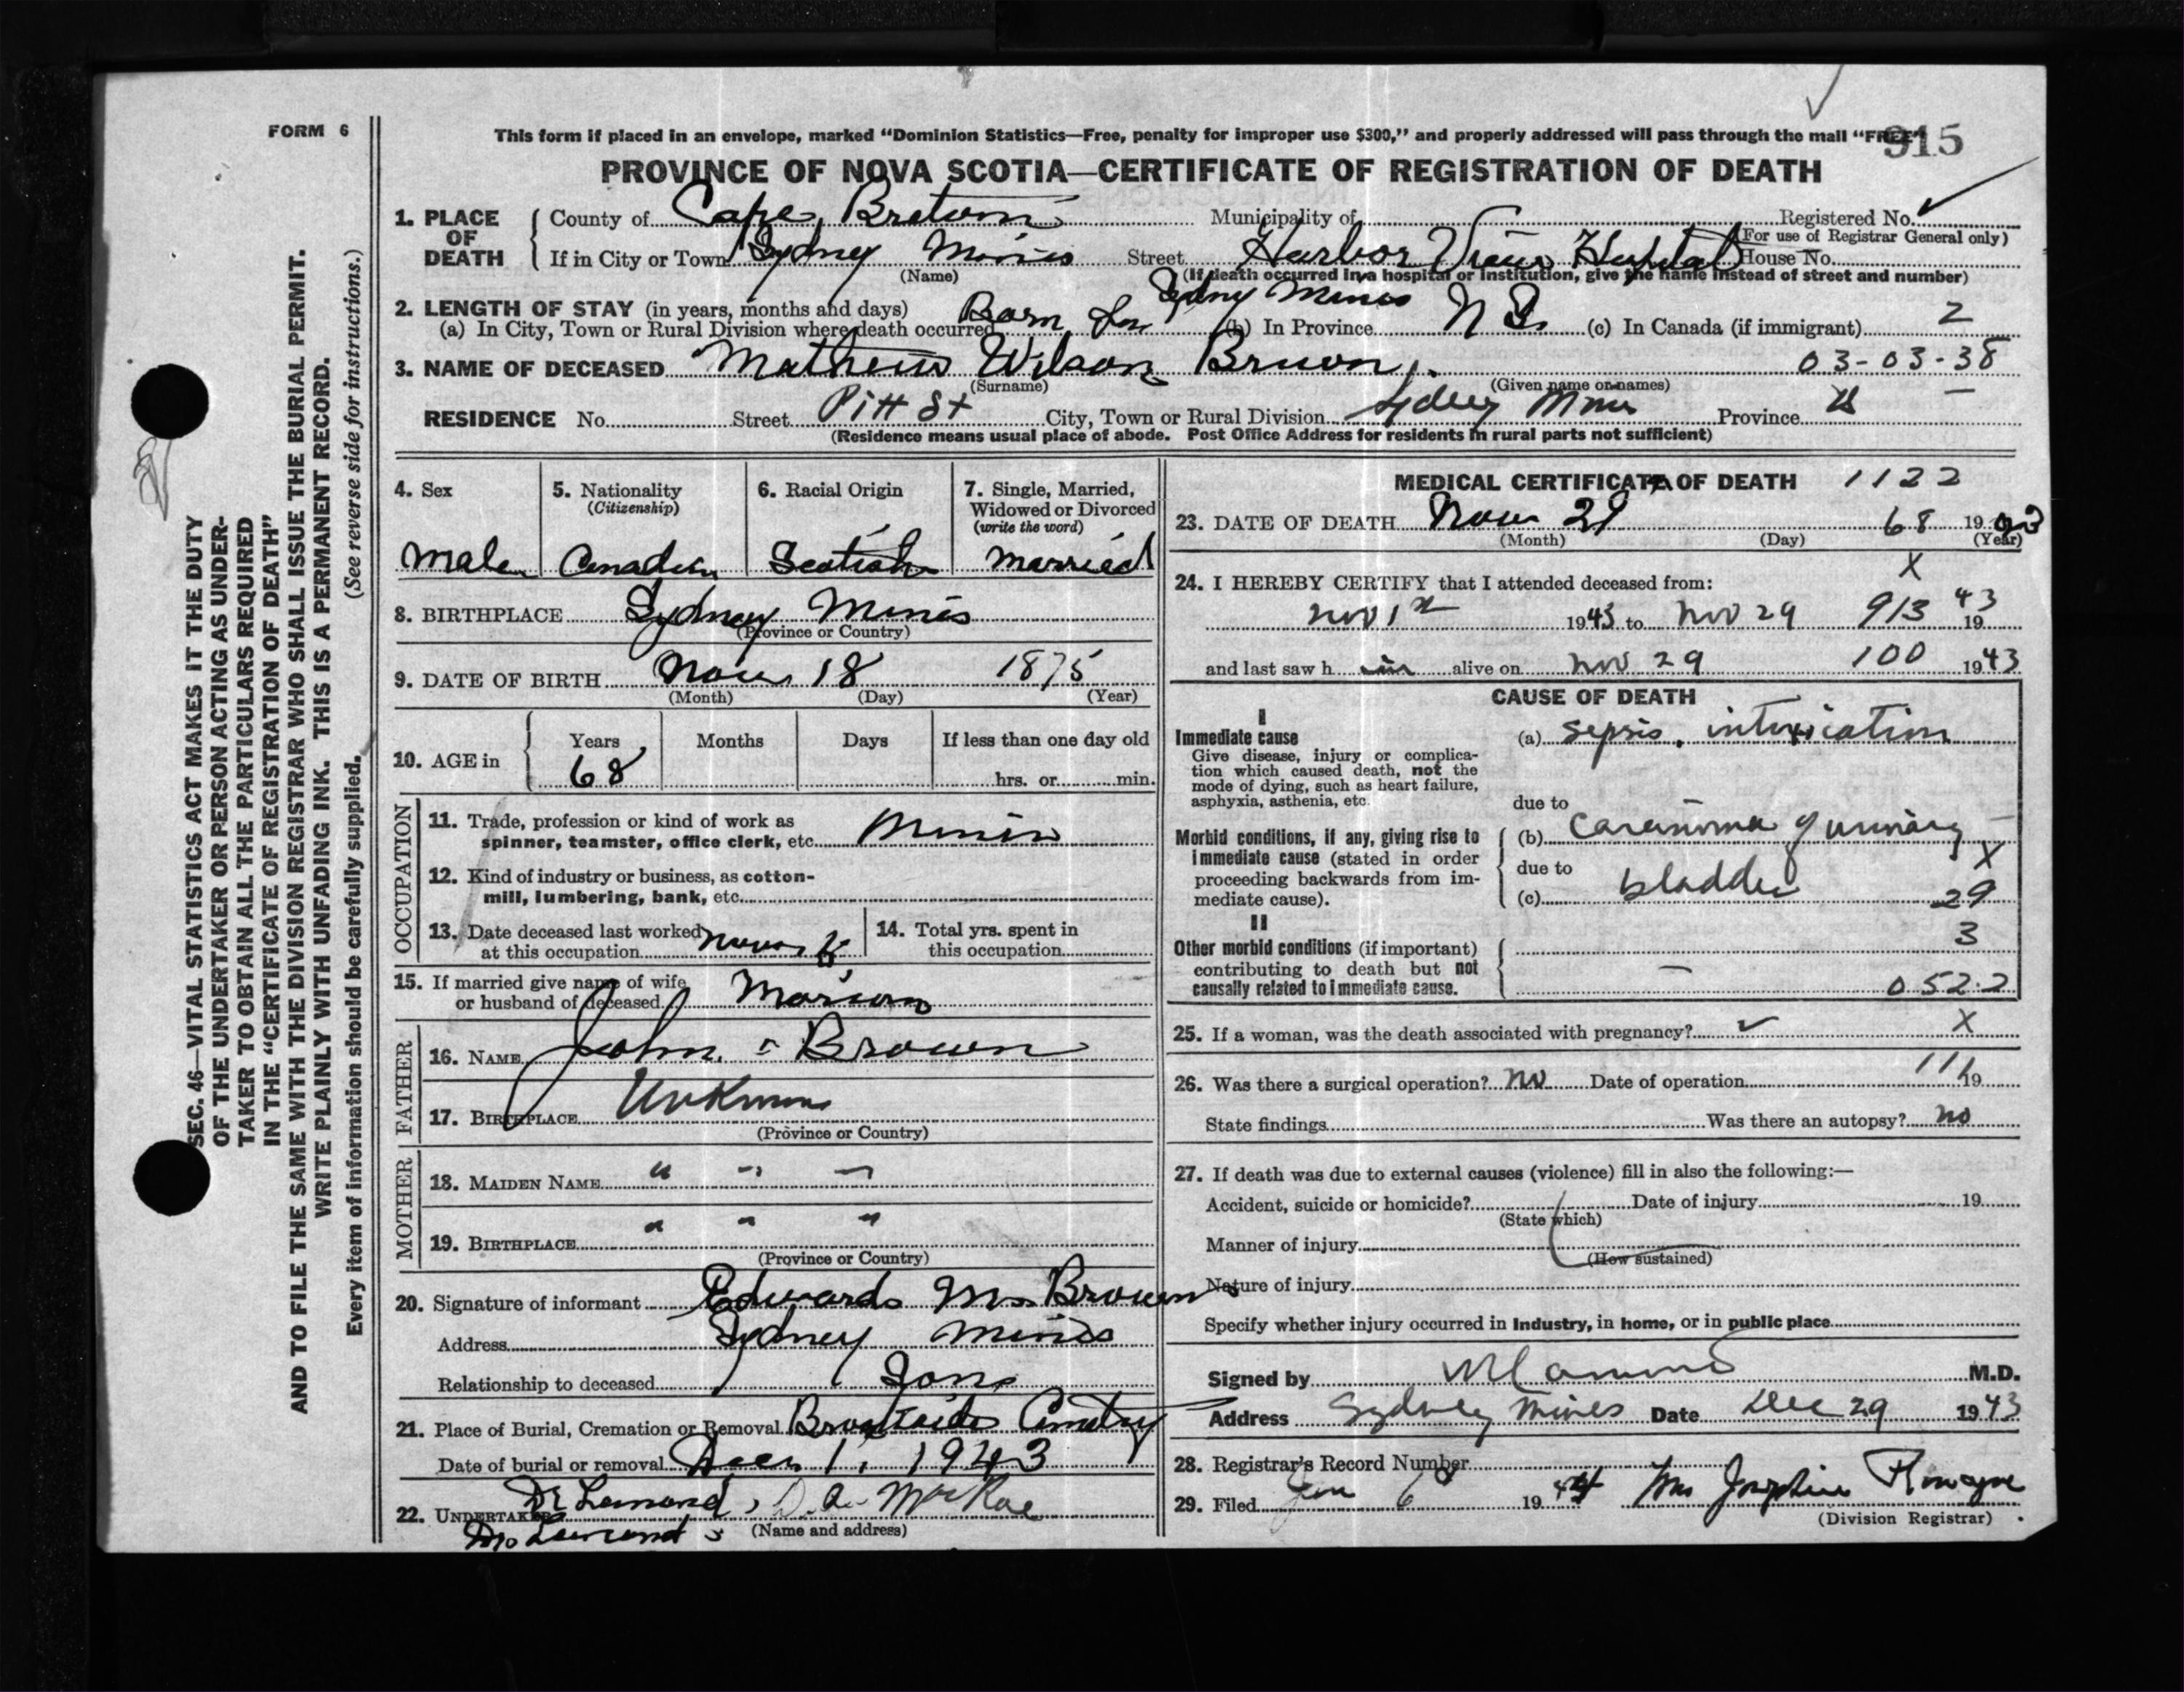 FORM 6
This form if placed in an envelope, marked "Dominion Statistics—Free, penalty for improper use $300," and properly addressed will pass through the mail "FREE"
915
PROVINCE OF NOVA SCOTIA—CERTIFICATE OF REGISTRATION OF DEATH
1. PLACE OF DEATH County of Cape Breton Municipality of Registered No.
(For use of Registrar General only)
If in City or Town Sydney Mines Street Harbor View Hospital House No.
(Name) (If death occurred in a hospital or institution, give the name instead of street and number)
2. LENGTH OF STAY (in years, months and days) Sydny Mines
(a) In City, Town or Rural Division where death occurred Born (b) In Province N S (c) In Canada (if immigrant) 2
3. NAME OF DECEASED Mathew Wilson Brown 03-03-38
(Surname) (Given name or names)
RESIDENCE No. Street Pitt St City, Town or Rural Division Sydney Mines Province
(Residence means usual place of abode. Post Office Address for residents in rural parts not sufficient)
4. Sex Male
5. Nationality (Citizenship) Canadian
6. Racial Origin Scotish
7. Single, Married, Widowed or Divorced (write the word) Married
8. BIRTHPLACE Sydney Mines
(Province or Country)
9. DATE OF BIRTH Nov 18 1875
(Month) (Day) (Year)
10. AGE in Years 68 Months Days If less than one day old
hrs. or min.
OCCUPATION
11. Trade, profession or kind of work as
spinner, teamster, office clerk, etc. Miner
12. Kind of industry or business, as cotton-
mill, lumbering, bank, etc.
13. Date deceased last worked
at this occupation
14. Total yrs. spent in
this occupation
15. If married give name of wife
or husband of deceased Marion
FATHER
16. NAME John Brown
17. BIRTHPLACE Unknown
(Province or Country)
MOTHER
18. MAIDEN NAME " " "
19. BIRTHPLACE " " "
(Province or Country)
20. Signature of informant Edward M. Brown
Address Sydney Mines
Relationship to deceased Son
21. Place of Burial, Cremation or Removal Brookside Cemetry
Date of burial or removal Dec 1, 1943
22. UNDERTAKER D. A. MacRae
(Name and address)
MEDICAL CERTIFICATE OF DEATH 1122
23. DATE OF DEATH Nov 29 68 1943
(Month) (Day) (Year)
X
24. I HEREBY CERTIFY that I attended deceased from:
Nov 1st 1943 to Nov 29 913 1943
and last saw h im alive on Nov 29 100 1943
CAUSE OF DEATH
I
Immediate cause (a) sepsis. intoxication
Give disease, injury or complica-
tion which caused death, not the
mode of dying, such as heart failure,
asphyxia, asthenia, etc.
due to
Morbid conditions, if any, giving rise to (b) Carcinoma of urinary
immediate cause (stated in order
proceeding backwards from im-
mediate cause).
due to X
(c) bladder 29
II
Other morbid conditions (if important) 3
contributing to death but not
causally related to immediate cause. — 052.2
25. If a woman, was the death associated with pregnancy? X
26. Was there a surgical operation? no Date of operation 111 19
State findings Was there an autopsy? no
27. If death was due to external causes (violence) fill in also the following:—
Accident, suicide or homicide? Date of injury 19
(State which)
Manner of injury
(How sustained)
Nature of injury
Specify whether injury occurred in Industry, in home, or in public place
Signed by M.D.
Address Sydney Mines Date Dec 29 1943
28. Registrar's Record Number
29. Filed Jan 6 1944 Mrs Josephine
(Division Registrar)
SEC. 46—VITAL STATISTICS ACT MAKES IT THE DUTY
OF THE UNDERTAKER OR PERSON ACTING AS UNDER-
TAKER TO OBTAIN ALL THE PARTICULARS REQUIRED
IN THE "CERTIFICATE OF REGISTRATION OF DEATH"
AND TO FILE THE SAME WITH THE DIVISION REGISTRAR WHO SHALL ISSUE THE BURIAL PERMIT.
WRITE PLAINLY WITH UNFADING INK. THIS IS A PERMANENT RECORD.
Every item of information should be carefully supplied. (See reverse side for instructions.)